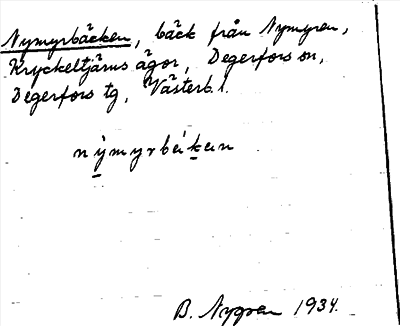 Nymyrbäcken, bäck från Nymyren,
Kryckeltjärns ägor, Degerfors sn,
Degerfors tg, Västerb. l.
nỳmyrbèkein
B. Nygren 1934.